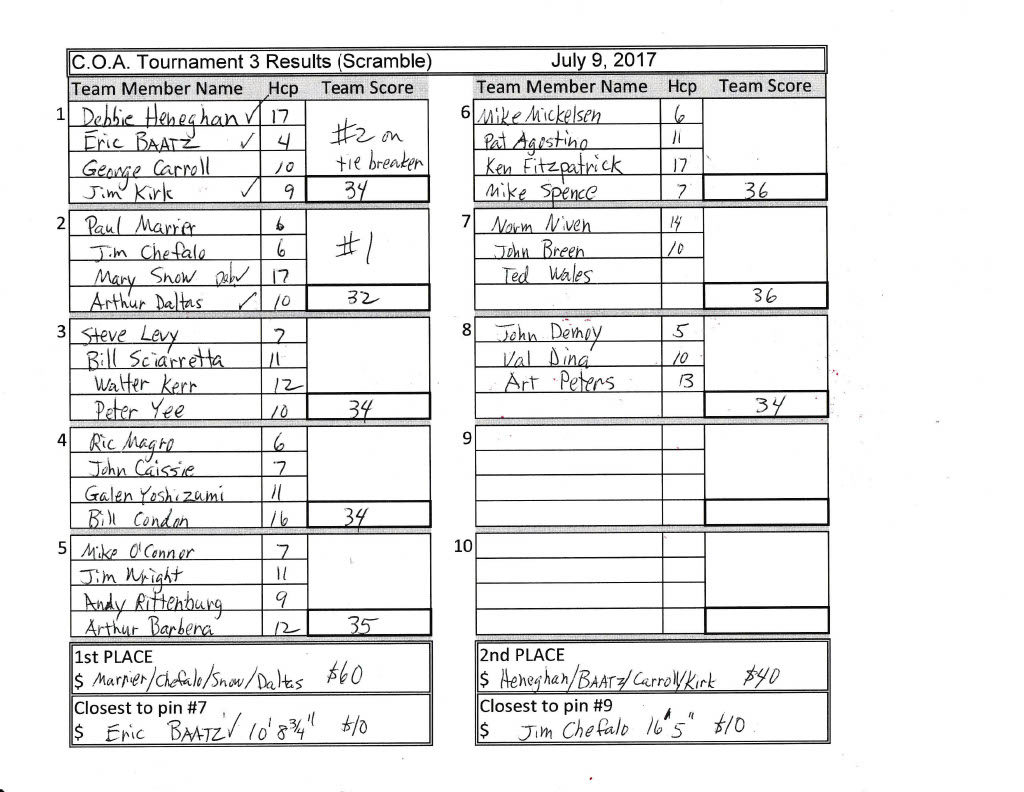 C.O.A. Tournament 3 Results (Scramble) July 9, 2017
Team Member Name Hcp Team Score
1 Debbie Heneghan ✓ 17
#2 on
Eric BAATZ ✓ 4
tie breaker
George Carroll 10
Jim Kirk ✓ 9 34
2 Paul Marrier 6
#1
Jim Chefalo 6
Mary Snow 17
Arthur Daltas ✓ 10 32
3 Steve Levy 7
Bill Sciarretta 11
Walter Kerr 12
Peter Yee 10 34
4 Ric Magro 6
John Caissie 7
Galen Yoshizumi 11
Bill Condon 16 34
5 Mike O'Connor 7
Jim Wright 11
Andy Rittenburg 9
Arthur Barbera 12 35
Team Member Name Hcp Team Score
6 Mike Mickelsen 6
Pat Agostino 11
Ken Fitzpatrick 17
Mike Spence 7 36
7 Norm Niven 14
John Breen 10
Ted Wales
36
8 John Demoy 5
Val Dina 10
Art Peters 13
34
9
10
1st PLACE
$ Marrier/Chefalo/Snow/Daltas $60
2nd PLACE
$ Heneghan/BAATZ/Carroll/Kirk $40
Closest to pin #7
$ Eric BAATZ ✓ 10' 8 3/4" $10
Closest to pin #9
$ Jim Chefalo 16' 5" $10